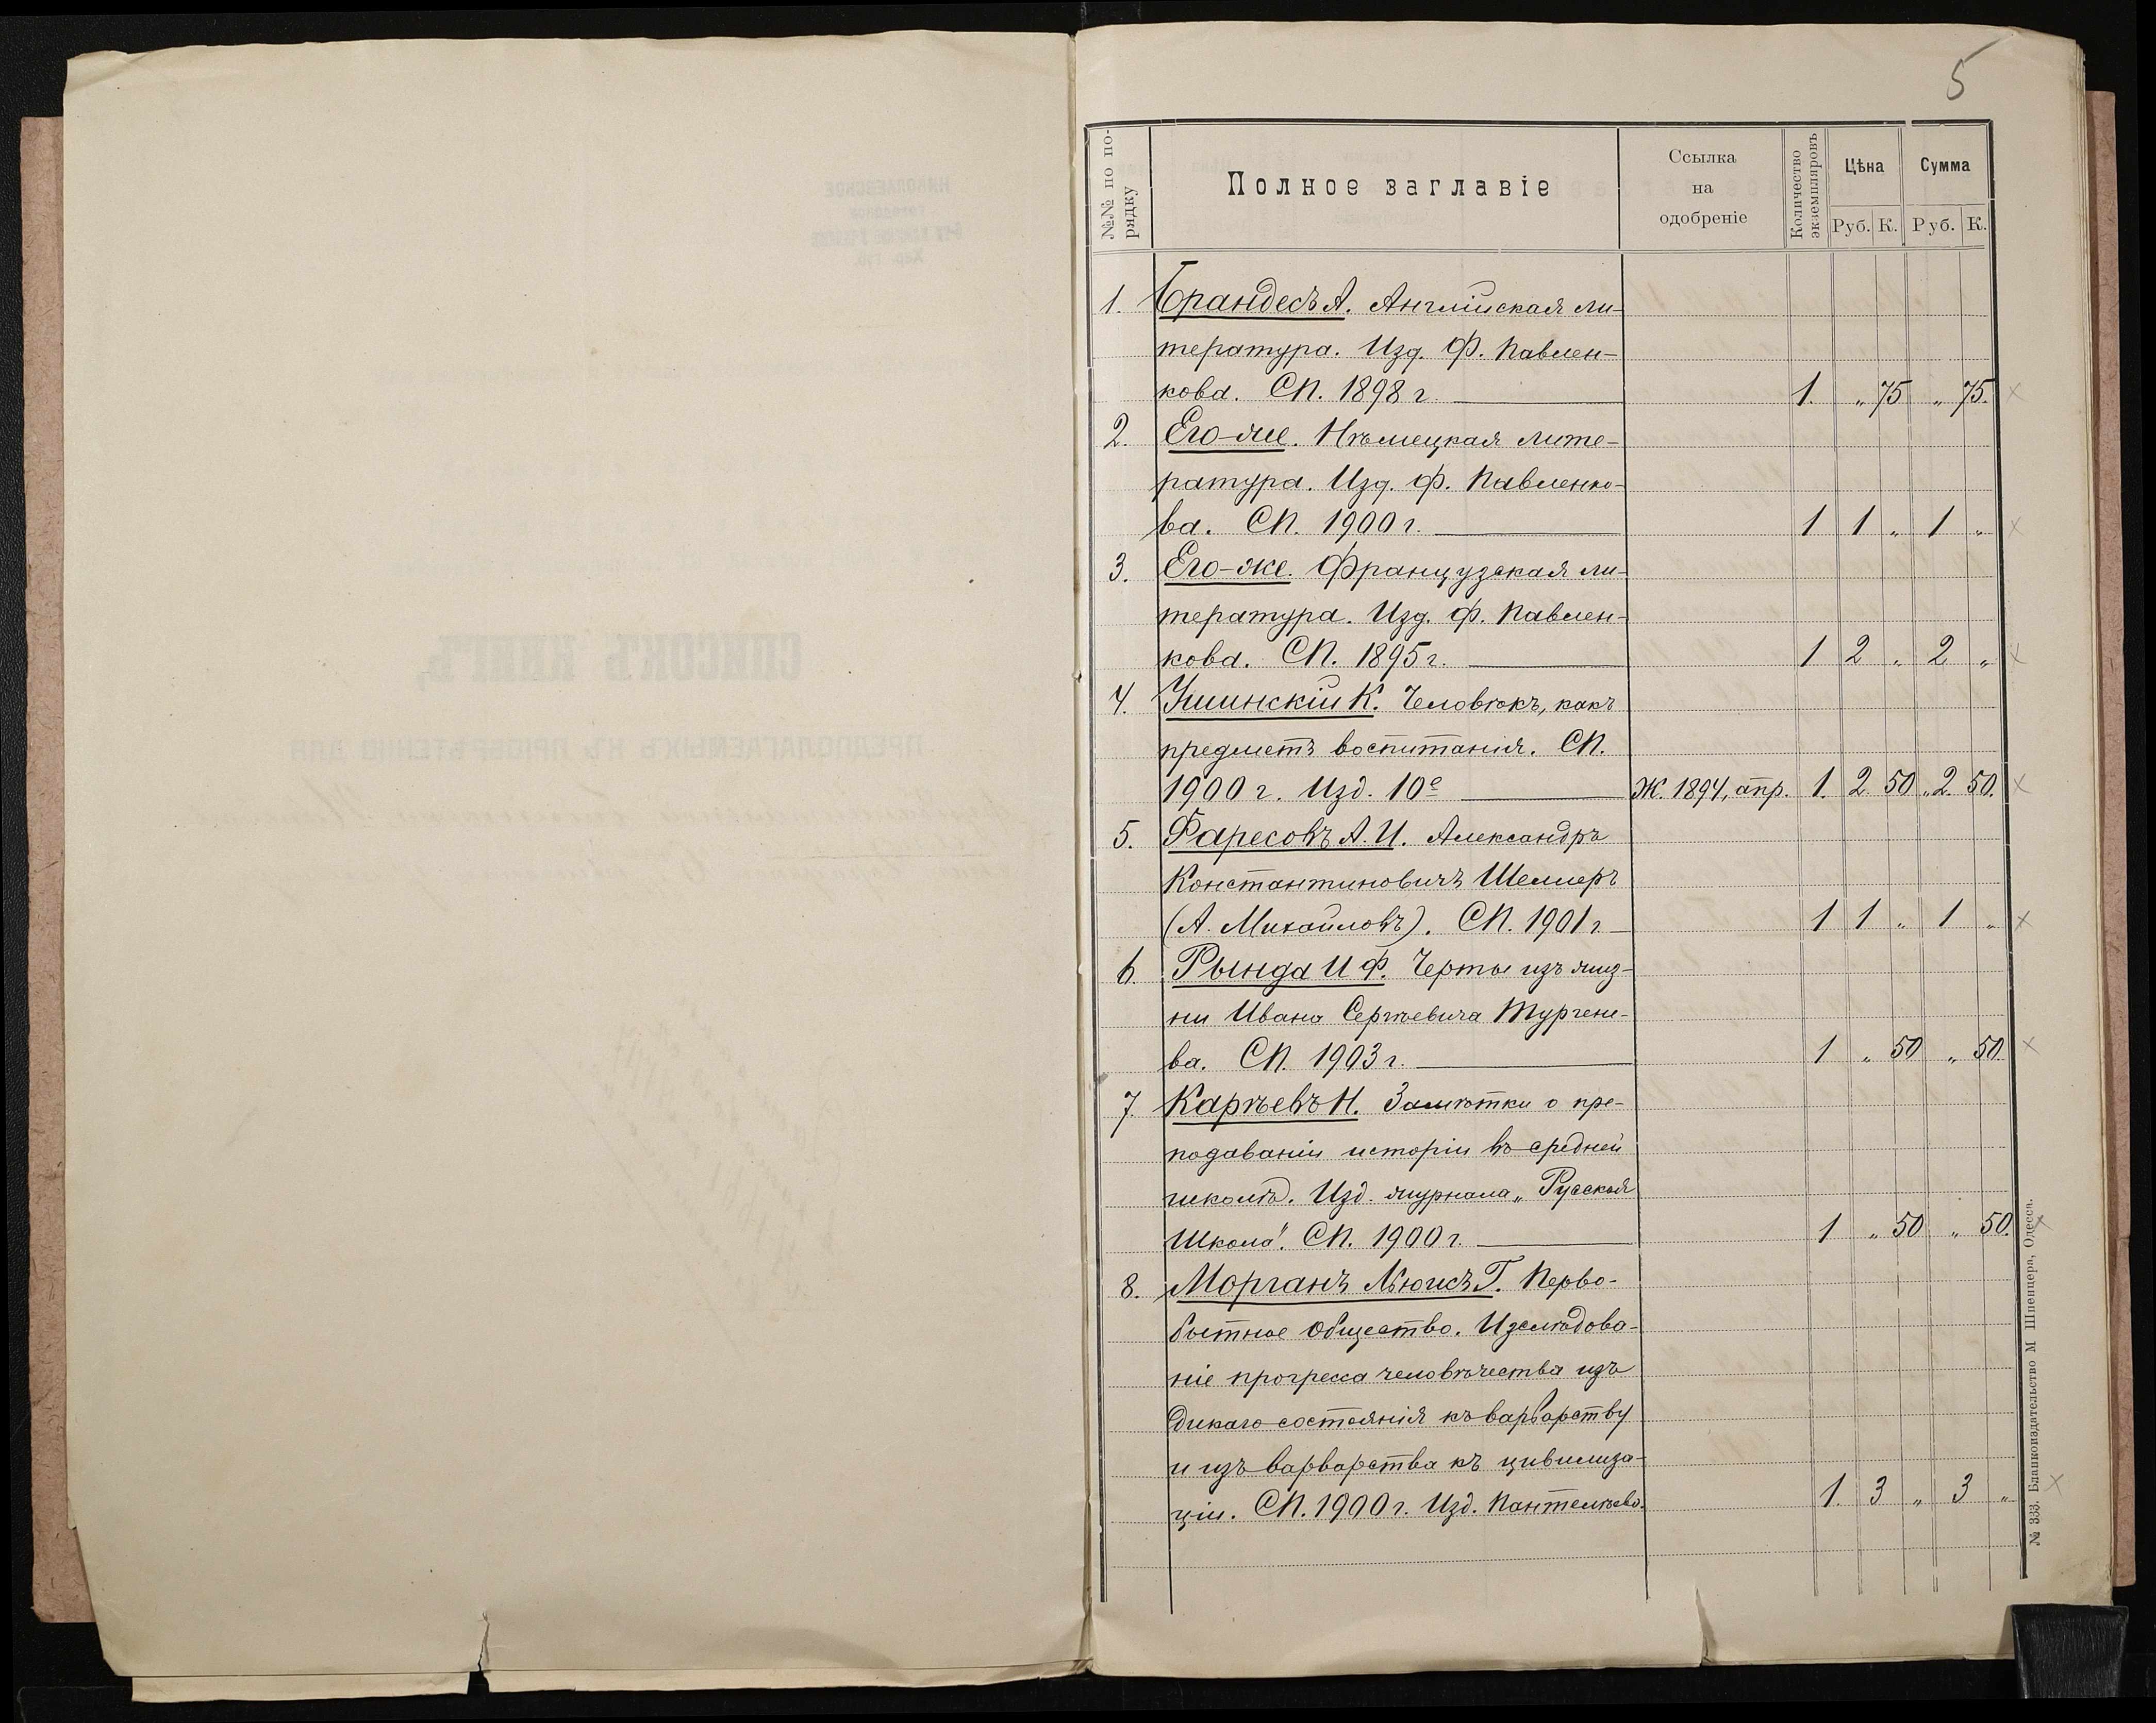 5
№№ по по-
рядку
Полное заглавіе
Ссылка
на
одобреніе
Количество
экземпляровъ
Цѣна
Сумма
Руб. К. Руб. К.
1. Брандесъ А. Англійская ли-
тература. Изд. Ф. Павлен-
кова. СП. 1898 г. 1. „ 75 „ 75.
2. Его-же. Нѣмецкая лите-
ратура. Изд. Ф. Павленко-
ва. СП. 1900 г. 1 1 „ 1 „
3. Его-же. Французская ли-
тература. Изд. Ф. Павлен-
кова. СП. 1895 г. 1 2 „ 2 „
4. Ушинскій К. Человѣкъ, какъ
предметъ воспитанія. СП.
1900 г. Изд. 10е Ж. 1894, апр. 1. 2 50 „ 2. 50.
5. Фаресовъ А. И. Александръ
Константиновичъ Шеллеръ
(А. Михайловъ). СП. 1901 г. 1 1 „ 1 „
6. Рында И Ф. Черты изъ жиз-
ни Ивана Сергѣевича Тургене-
ва. СП. 1903 г. 1 „ 50 „ 50.
7. Карѣевъ Н. Замѣтки о пре-
подаваніи исторіи въ средней
школѣ. Изд. журнала „Русская
Школа". СП. 1900 г. 1 „ 50 „ 50.
8. Морганъ Льюисъ Г. Перво-
бытное общество. Изслѣдова-
ніе прогресса человѣчества изъ
дикаго состоянія къ варварству
и изъ варварства къ цивилиза-
ціи. СП. 1900 г. Изд. Пантелѣева. 1. 3 „ 3 „
№ 333. Бланкоиздательство М Шпенцера, Одесса.